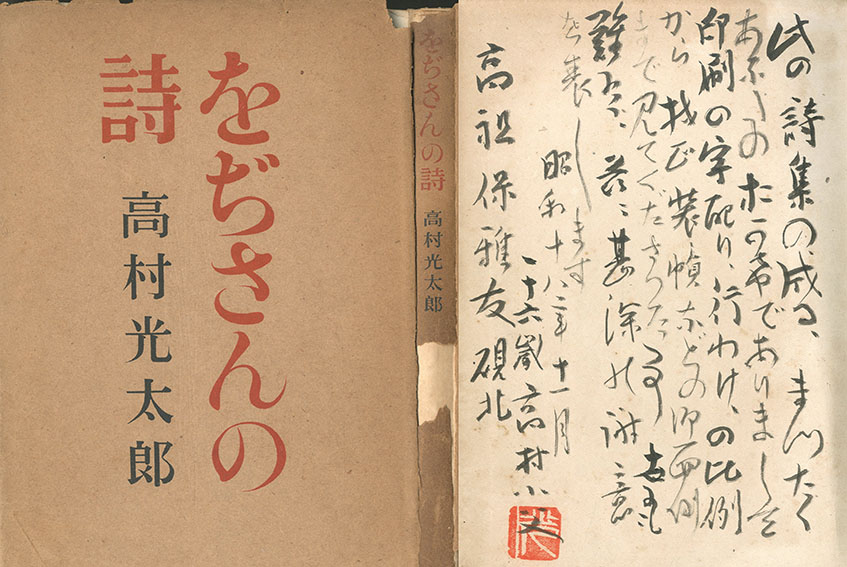 をぢさんの
詩
高村光太郎
をぢさんの詩 高村光太郎
此の詩集の成る、まつたく
あなたのおかげでありました
印刷の字配り、行わけ、の比例
から校正装幀などの御面倒
まで見てくださつた事
難有く、茲に甚深の謝意
を表します
昭和十八年十一月
高村小父
高祖保雅友硯北